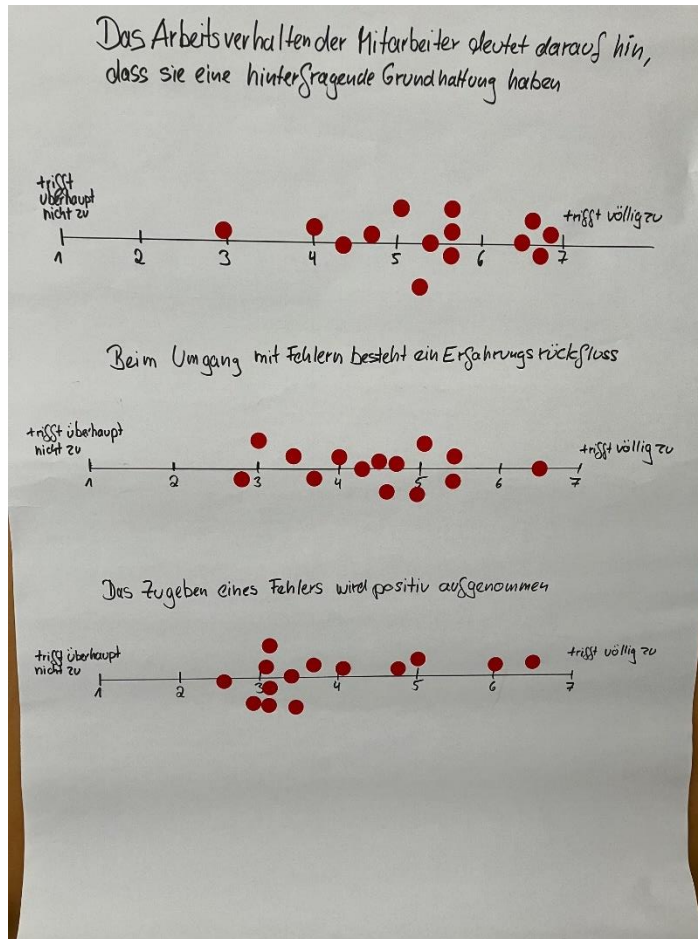 Das Arbeitsverhalten der Mitarbeiter deutet darauf hin,
dass sie eine hinterfragende Grundhaltung haben
trifft
überhaupt
nicht zu
trifft völlig zu
1 2 3 4 5 6 7
Beim Umgang mit Fehlern besteht ein Erfahrungsrückfluss
trifft überhaupt
nicht zu
trifft völlig zu
1 2 3 4 5 6 7
Das Zugeben eines Fehlers wird positiv aufgenommen
trifft überhaupt
nicht zu
trifft völlig zu
1 2 3 4 5 6 7